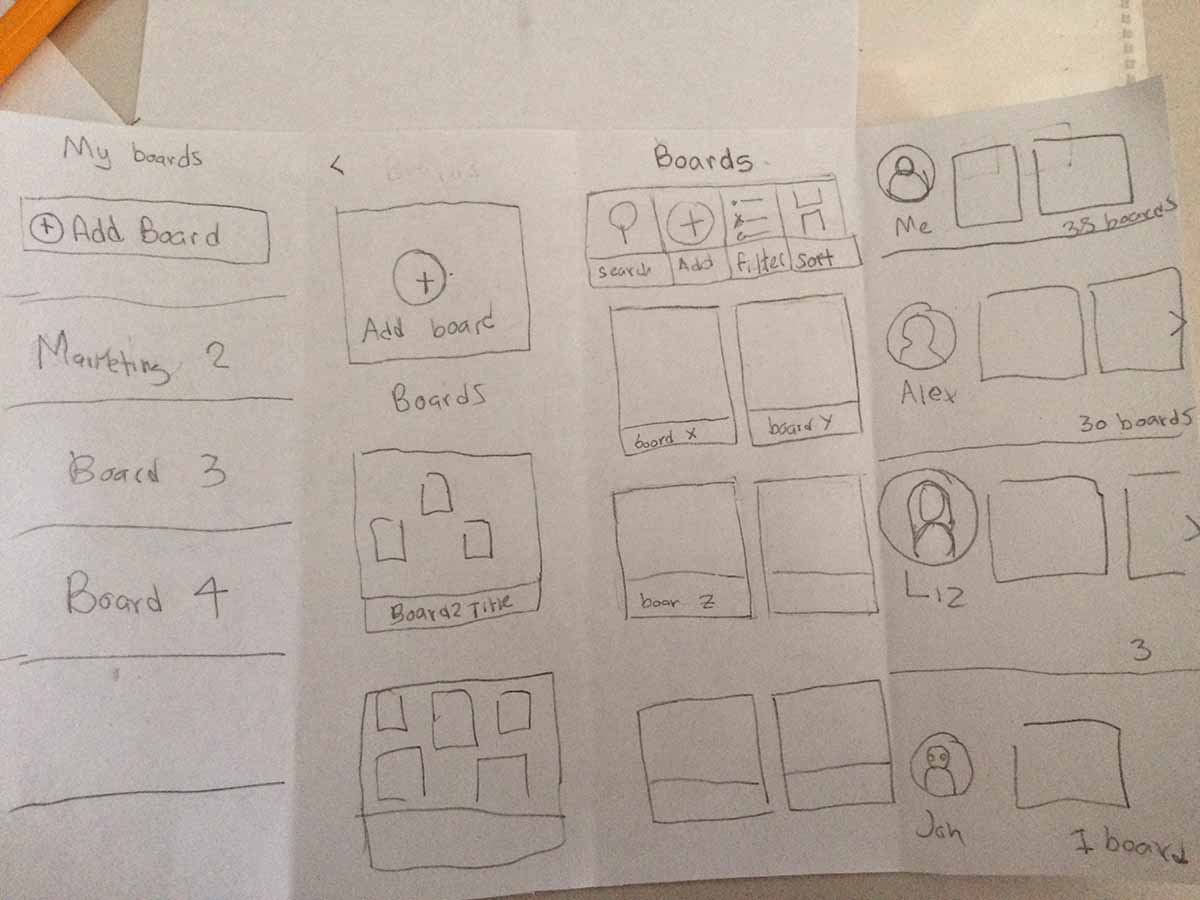 My boards
+ Add Board
Marketing 2
Board 3
Board 4
<
+
Add board
Boards
Board2 Title
Boards
search Add filter sort
board X
board Y
boar Z
Me
38 boards
Alex
>
30 boards
Liz
>
3
Jan
1 board